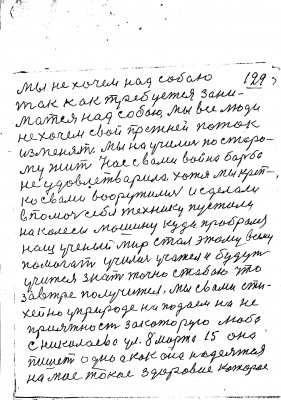 129
Мы не хочем над собаю
так как требуется зани-
матся над собаю, Мы все люди
не хочем свой прежней поток
изменят. Мы научили по старо-
му жит Нас свами война барба
не удовлетварила хотя мы креп-
ко свами вооружилис и сделали
в помоч себя технику пустили
на колеси машину куда пробрался
наш ученый мир стал этому всему
помагат училис учатся и будут
учится знат точно стобою что
завтре получится, Мы свами сти-
хейно уприроде на подаем на не
приятност за каторую люба
с николаево ул. 8 марта 15 она
пишет одно а как она надеятся
на мае такое здоровие каторое